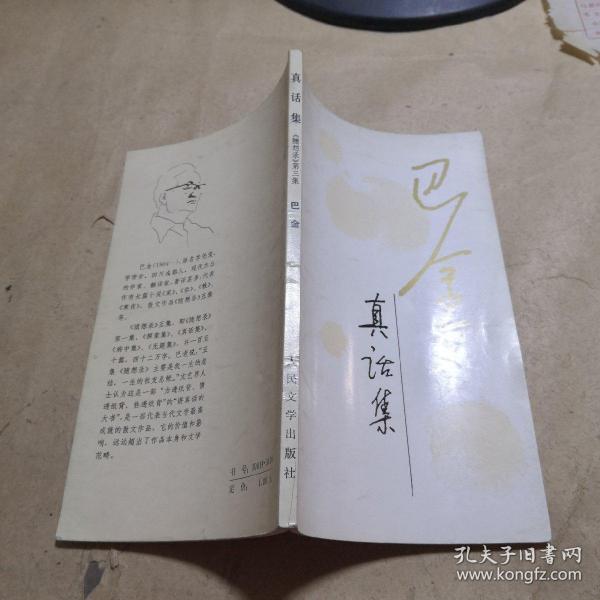 巴金
真话集
真话集
《随想录》第三集
巴金
人民文学出版社
巴金(1904—),原名李尧棠,
字芾甘,四川成都人。现代杰出
的作家、翻译家。著译甚多,代表
作有长篇小说《家》、《春》、《秋》、
《寒夜》,散文作品《随想录》五集
等。
《随想录》五集,即《随想录》
第一集、《探索集》、《真话集》、
《病中集》、《无题集》,共一百五
十篇,四十二万字。巴老说,“五
集《随想录》主要是我一生的总
结,一生的收支总帐。”文艺界人
士认为这是一部“力透纸背,情
透纸背,热透纸背”的“讲真话的
大书”,是一部代表当代文学最高
成就的散文作品,它的价值和影
响,远远超出了作品本身和文学
范畴。
书号:
定价:
孔夫子旧书网
www.kongfz.com